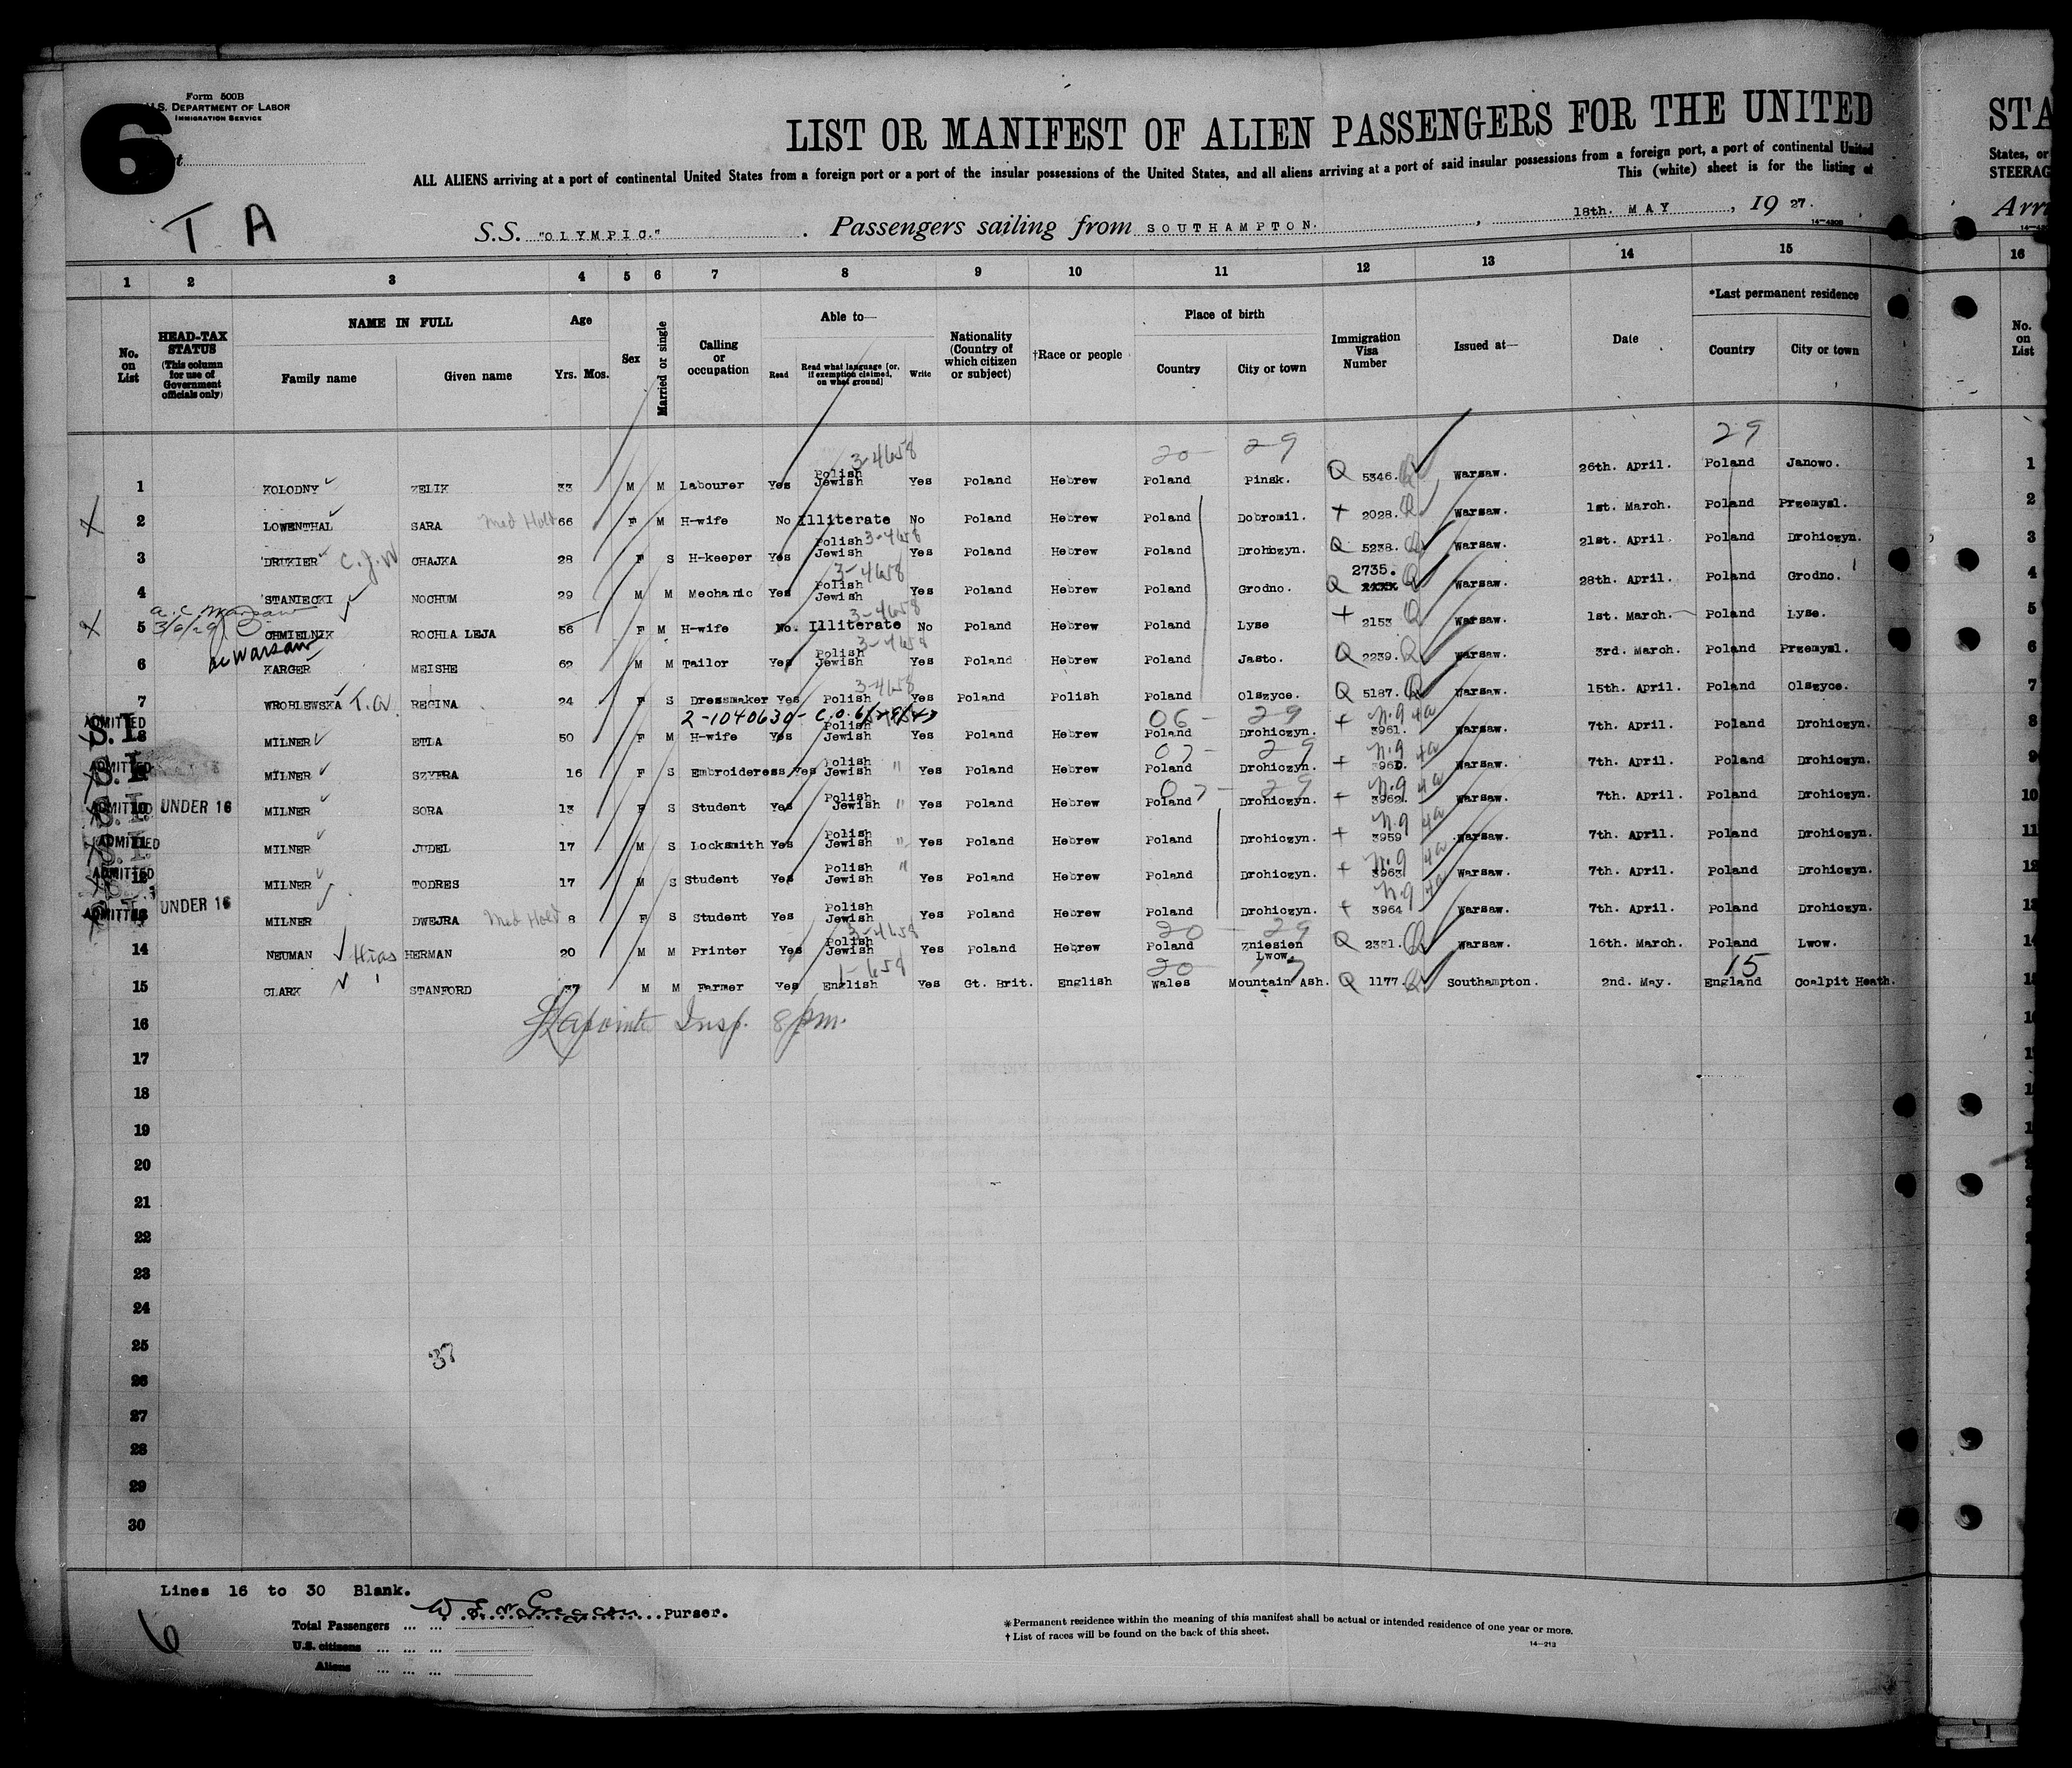 Form 500B
U.S. DEPARTMENT OF LABOR
IMMIGRATION SERVICE
6
LIST OR MANIFEST OF ALIEN PASSENGERS FOR THE UNITED
STA
ALL ALIENS arriving at a port of continental United States from a foreign port or a port of the insular possessions of the United States, and all aliens arriving at a port of said insular possessions from a foreign port, a port of continental United
States, or
This (white) sheet is for the listing of
STEERAG
T A
S.S. "OLYMPIC." Passengers sailing from SOUTHAMPTON. , 18th. MAY , 19 27.
Arri
1 2 3 4 5 6 7 8 9 10 11 12 13 14 15 16
No. on List
HEAD-TAX STATUS (This column for use of Government officials only)
NAME IN FULL
Family name Given name
Age
Yrs. Mos.
Sex
Married or single
Calling or occupation
Able to—
Read Read what language [or, if exemption claimed, on what ground] Write
Nationality (Country of which citizen or subject)
†Race or people
Place of birth
Country City or town
Immigration Visa Number
Issued at—
Date
*Last permanent residence
Country City or town
No. on List
3-4658 20- 29 29
1 KOLODNY ZELIK 33 M M Labourer Yes Polish Jewish Yes Poland Hebrew Poland Pinsk. Q 5346. Q Warsaw. 26th. April. Poland Janowo. 1
X 2 LOWENTHAL SARA Med Hold 66 F M H-wife No Illiterate No Poland Hebrew Poland Dobromil. + 2028. Q Warsaw. 1st. March. Poland Przemysl. 2
3-4658
3 DRUKIER C.J.W CHAJKA 28 F S H-keeper Yes Polish Jewish Yes Poland Hebrew Poland Drohiczyn. Q 5238. Q Warsaw. 21st. April. Poland Drohiczyn. 3
3-4658 2735.
4 STANIECKI NOCHUM 29 M M Mechanic Yes Polish Jewish Yes Poland Hebrew Poland Grodno. Q Q Warsaw. 28th. April. Poland Grodno. 4
a.c. Warsaw
3/6/29
3-4658
X 5 CHMIELNIK ROCHLA LEJA 56 F M H-wife No. Illiterate No Poland Hebrew Poland Lyse + 2153 Q Warsaw. 1st. March. Poland Lyse. 5
ac Warsaw
3-4658
6 KARGER MEISHE 62 M M Tailor Yes Polish Jewish Yes Poland Hebrew Poland Jasto. Q 2239. Q Warsaw. 3rd. March. Poland Przemysl. 6
3-4658
7 WROBLEWSKA REGINA 24 F S Dressmaker Yes Polish Yes Poland Polish Poland Olszyce. Q 5187. Q Warsaw. 15th. April. Poland Olszyce. 7
2-1040630- C.O. 06- 29 N.9 4a
ADMITTED S.I. 8 MILNER ETLA 50 F M H-wife Yes Polish Jewish Yes Poland Hebrew Poland Drohiczyn. + 3961. Warsaw. 7th. April. Poland Drohiczyn. 8
07- 29 N.9 4a
ADMITTED S.I. MILNER SZYFRA 16 F S Embroideress Yes Polish Jewish " Yes Poland Hebrew Poland Drohiczyn. + 3960. Warsaw. 7th. April. Poland Drohiczyn. 9
07- 29 N.9 4a
ADMITTED 10 UNDER 16 MILNER SORA 13 F S Student Yes Polish Jewish " Yes Poland Hebrew Poland Drohiczyn. + 3962. Warsaw. 7th. April. Poland Drohiczyn. 10
N.9 4a
ADMITTED 11 MILNER JUDEL 17 M S Locksmith Yes Polish Jewish " Yes Poland Hebrew Poland Drohiczyn. + 3959 Warsaw. 7th. April. Poland Drohiczyn. 11
N.9 4a
ADMITTED 12 MILNER TODRES 17 M S Student Yes Polish Jewish " Yes Poland Hebrew Poland Drohiczyn. + 3963 Warsaw. 7th. April. Poland Drohiczyn. 12
N.9 4a
ADMITTED 13 UNDER 16 MILNER DWEJRA Med Hold 8 F S Student Yes Polish Jewish Yes Poland Hebrew Poland Drohiczyn. + 3964 Warsaw. 7th. April. Poland Drohiczyn. 13
3-4658 20- 29
14 NEUMAN Hias HERMAN 20 M M Printer Yes Polish Jewish Yes Poland Hebrew Poland Zniesien Lwow. Q 2331. Q Warsaw. 16th. March. Poland Lwow. 14
1-658 20 15
15 CLARK STANFORD 37 M M Farmer Yes English Yes Gt. Brit. English Wales Mountain Ash. Q 1177. Q Southampton. 2nd. May. England Coalpit Heath. 15
16 Lapointe Insp. 8 pm.
17
18
19
20
21
22
23
24
25
37
26
27
28
29
30
Lines 16 to 30 Blank.
Purser.
6
Total Passengers ... ...
U.S. citizens ... ... ...
Aliens ... ... ...
*Permanent residence within the meaning of this manifest shall be actual or intended residence of one year or more.
†List of races will be found on the back of this sheet.
14—213